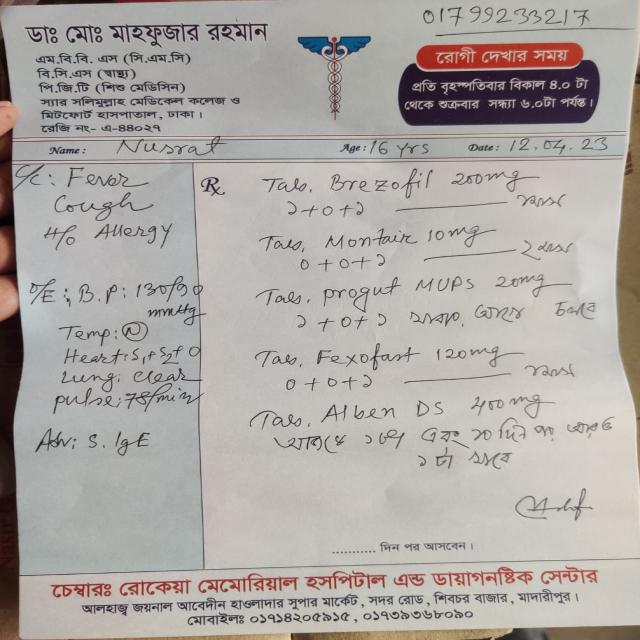 01799233217
ডাঃ মোঃ মাহফুজার রহমান
এম.বি.বি. এস (সি.এম.সি)
বি.সি.এস (স্বাস্থ্য)
পি.জি.টি (শিশু মেডিসিন)
স্যার সলিমুল্লাহ মেডিকেল কলেজ ও
মিটফোর্ট হাসপাতাল, ঢাকা।
রেজি নং- এ-৪৪০২৭
রোগী দেখার সময়
প্রতি বৃহস্পতিবার বিকাল ৪.০ টা
থেকে শুক্রবার সন্ধ্যা ৬.০টা পর্যন্ত।
Name: Nusrat Age: 16 yrs Date: 12.04.23
C/C: Fever
Cough
H/o Allergy
O/E: B.P: 130/90
mmHg
Temp: N
Heart: S1+S2+0
Lung: clear
pulse: 78/min
Adv: S. IgE
Rx
Tab. Brezofil 200mg
১+০+১
Tab. Montair 10mg
০+০+১
Tab. progut MUPS 20mg
১+০+১
Tab. Fexofast 120mg
০+০+১
Tab. Alben DS 400mg
১টা
.......... দিন পর আসবেন।
চেম্বারঃ রোকেয়া মেমোরিয়াল হসপিটাল এন্ড ডায়াগনষ্টিক সেন্টার
আলহাজ্ব জয়নাল আবেদীন হাওলাদার সুপার মার্কেট, সদর রোড, শিবচর বাজার, মাদারীপুর।
মোবাইলঃ ০১৭১৪২০৫৯১৫, ০১৭৩৯৩৬৮০৯০